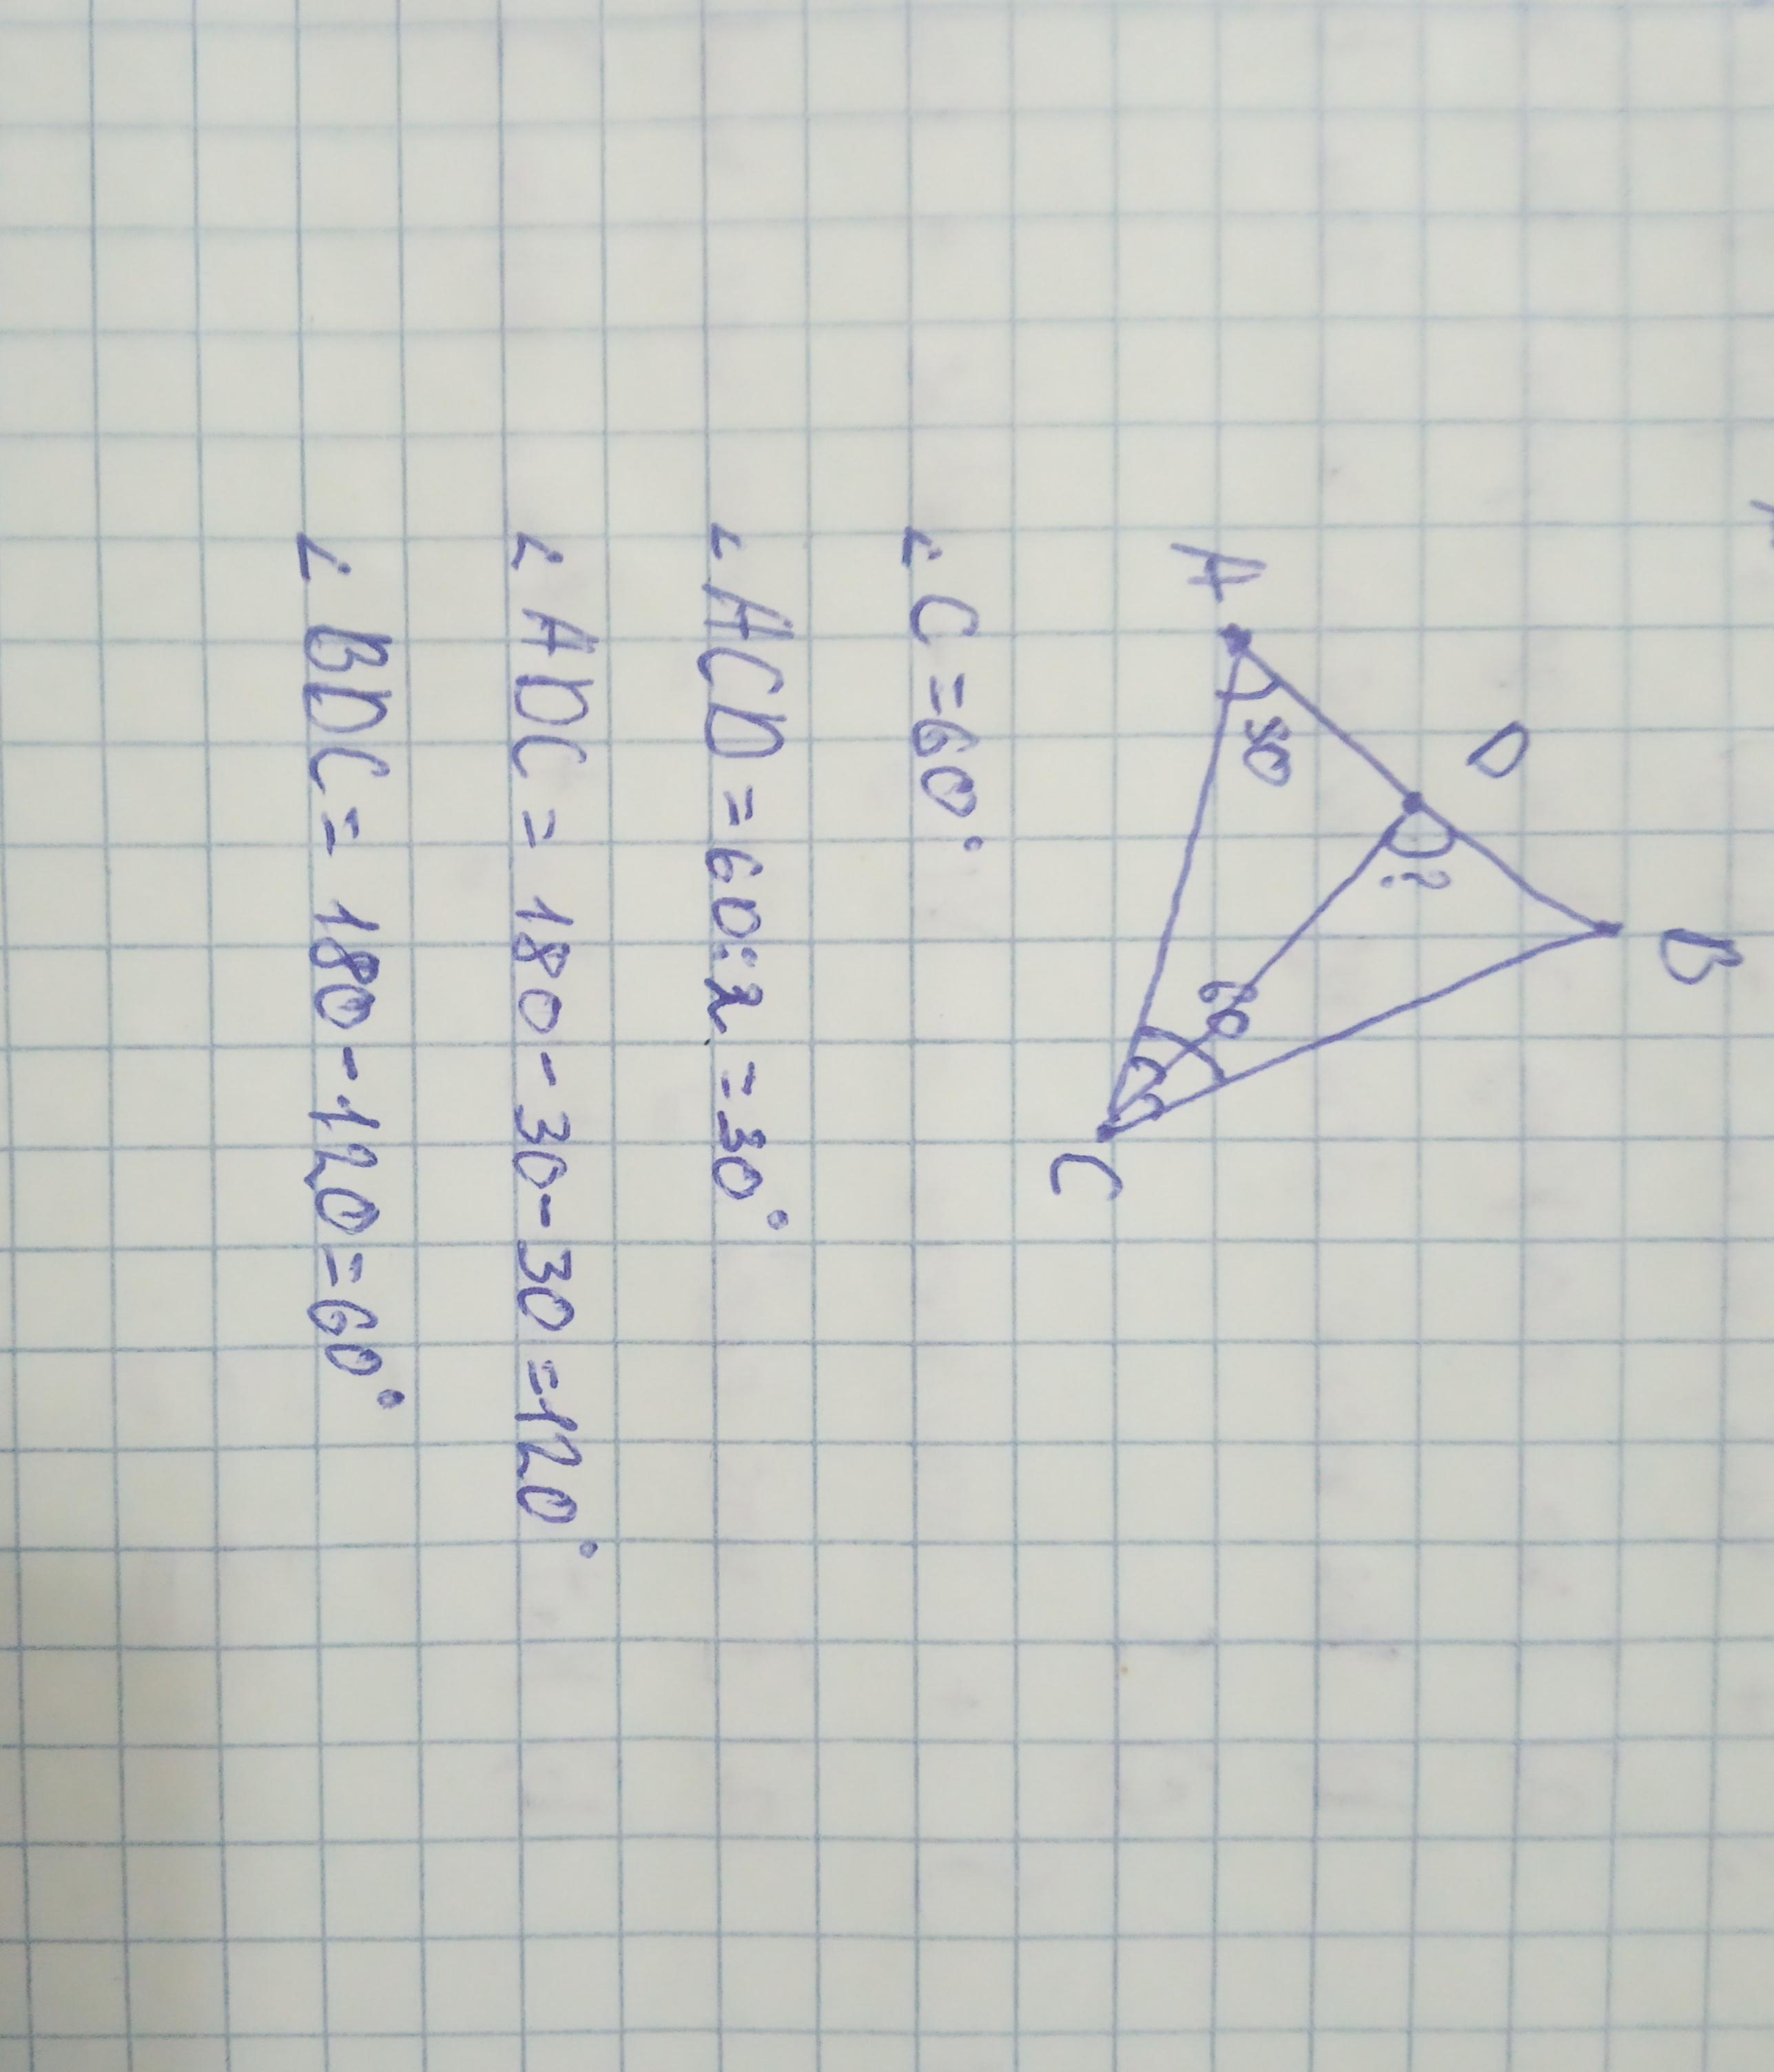 B
D
?
A
30
60
C
∠C=60°
∠ACD=60:2=30°
∠ADC=180-30-30=120°
∠BDC=180-120=60°